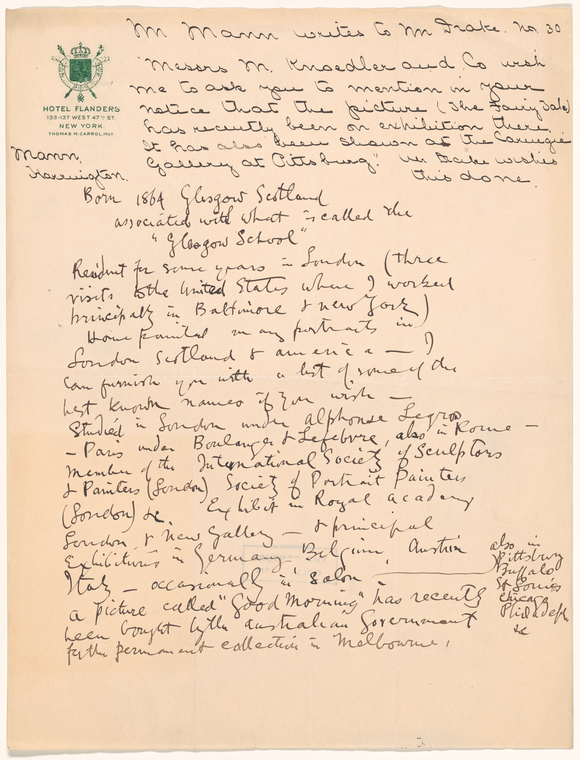 Mr Mann writes to Mr Drake. No. 30
HOTEL FLANDERS
133-137 WEST 47TH ST.
NEW YORK.
THOMAS M. CARROLL, MGR.
"Messrs M. Knoedler and Co wish
me to ask you to mention in your
notice that the picture (The Fairy Tale)
has recently been on exhibition there.
It has also been shown at the Carnegie
Gallery at Pittsburg." Mr Drake wishes
this done.
Mann,
Harrington.
Born 1864 Glasgow Scotland
associated with what is called the
"Glasgow School"
Resident for some years in London (three
visits to the United States where I worked
principally in Baltimore & New York)
Have painted many portraits in
London Scotland & America — I
can furnish you with a list of some of the
best known names if you wish —
Studied in London under Alphonse Legros
— Paris under Boulanger & Lefebvre, also in Rome —
Member of the International Society of Sculptors
& Painters (London) Society of Portrait Painters
(London) &c. Exhibit in Royal Academy
London & New Gallery — & principal
Exhibitions in Germany, Belgium, Austria
Italy — occasionally in Salon —
also in
Pittsburg
Buffalo
St Louis
Chicago
Philadelph
&c
a picture called "Good Morning" has recently
been bought by the Australian Government
for the permanent collection in Melbourne.